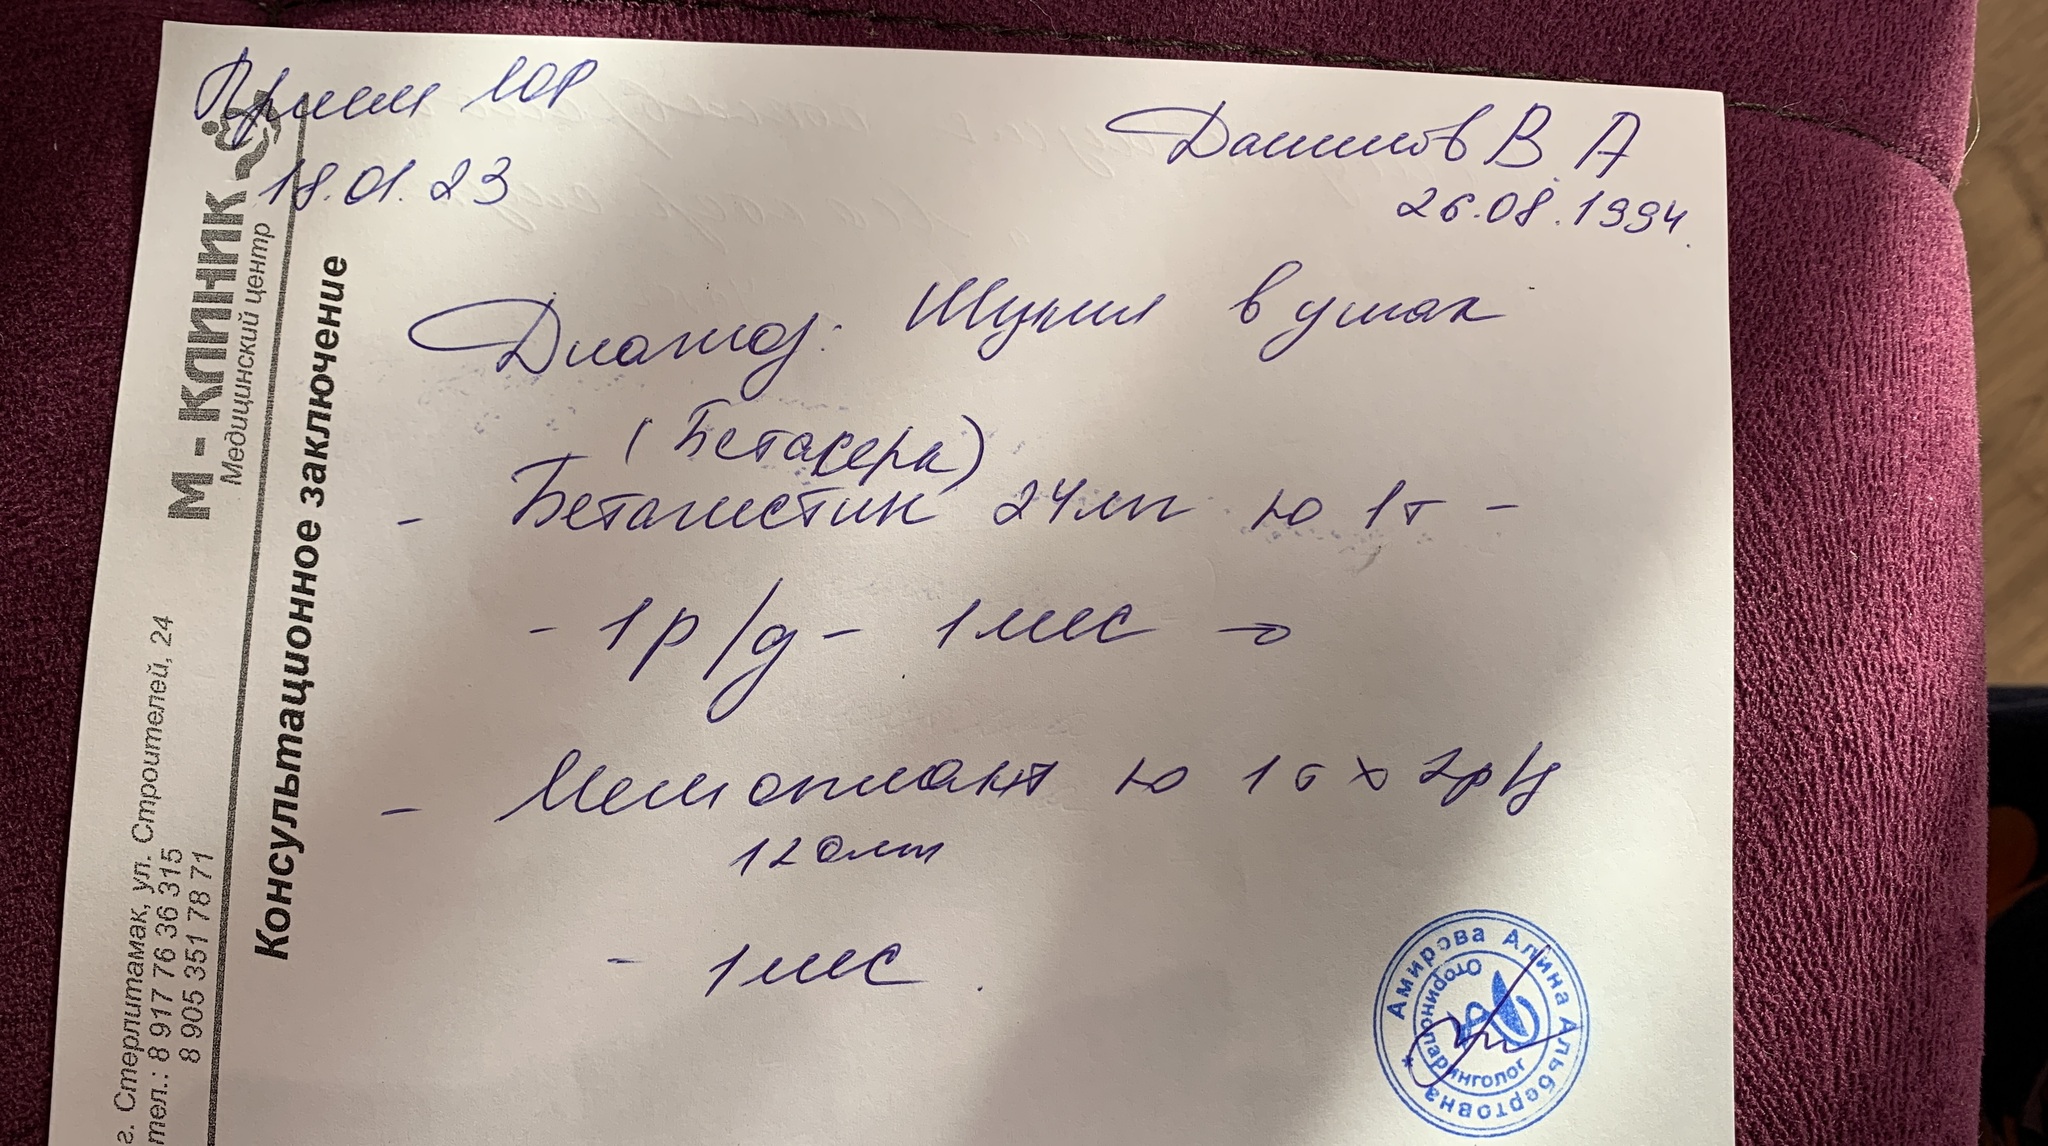 Прием ЛОР
18.01.23
Данилов В. А
26.08.1994.
Диагноз: Шумы в ушах
(Бетасерк)
- Бетагистин 24мг по 1т -
- 1р/д - 1мес →
- Мемоплант по 1т х 2р/д
120мг
- 1мес.
М-КЛИНИК
Медицинский центр
Консультационное заключение
г. Стерлитамак, ул. Строителей, 24
тел.: 8 917 76 36 315
8 905 351 78 71
Амирова Алина Альбертовна
Оториноларинголог